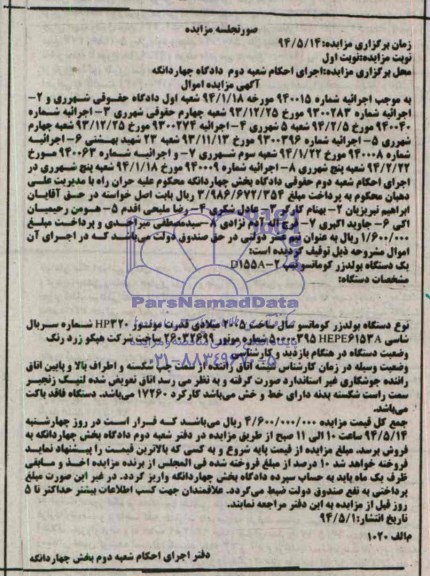 صورتجلسه مزایده
زمان برگزاری مزایده:۹۴/۵/۱۴
نوبت مزایده:نوبت اول
محل برگزاری مزایده:اجرای احکام شعبه دوم دادگاه چهاردانگه
آگهی مزایده اموال
به موجب اجرائیه شماره ۹۴۰۰۱۵ مورخه ۹۴/۱/۱۸ شعبه اول دادگاه حقوقی شهرری و ۲-
اجرائیه شماره ۹۳۰۰۲۸۳ مورخ ۹۳/۱۲/۲۵ شعبه چهارم حقوقی شهرری ۳- اجرائیه شماره
۹۴۰۰۴۰ مورخ ۹۴/۲/۵ شعبه ۵ شهرری ۴- اجرائیه ۹۳۰۰۲۷۴ مورخ ۹۳/۱۲/۲۵ شعبه چهارم
شهرری ۵- اجرائیه شماره ۹۳۰۰۳۹۶ مورخ ۹۳/۱۱/۱۳ شعبه ۲۳ شهید بهشتی ۶- اجرائیه
شماره ۹۴۰۰۰۸ مورخ ۹۴/۱/۲۲ شعبه سوم شهرری ۷- و اجرائیه شماره ۹۴۰۰۶۳ مورخ
۹۴/۲/۲۲ شعبه پنج شهرری ۸- اجرائیه شماره ۹۴۰۰۰۹ مورخ ۹۴/۱/۱۸ شعبه پنج شهرری در
اجرای احکام شعبه دوم حقوقی دادگاه بخش چهاردانگه محکوم علیه حران راه با مدیریت علی
دهبان محکوم به پرداخت مبلغ ۳/۹۸۶/۶۷۲/۳۵۴ ریال بابت اصل خواسته در حق آقایان
ابراهیم تبریزیان ۲- بهنام کارگر ۳- عادل شکری ۴- رضا ملیحی اقدم ۵- هومن رحیمیان
اگی ۶- جاوید اکبری ۷- فرج اله آدم نژادی ۸-سیدمصطفی میراحمدی و پرداخت مبلغ
۱/۶۰۰/۰۰۰ ریال به عنوان نیم عشر دولتی در حق صندوق دولت می‌باشد که در اجرای آن
اموال مشروحه ذیل توقیف گردیده است:
یک دستگاه بولدزر کوماتسو تیپ D155A-2
مشخصات دستگاه:
نوع دستگاه بولدزر کوماتسو سال ساخت ۲۰۰۵ میلادی قدرت موتور HP۳۲۰ شماره سریال
شاسی HEPE6153A ۵۰۰۰۰۳۹۵ شماره موتور ۲۶۰۳۲۶۹۹ ساخت شرکت هپکو زرد رنگ
وضعیت دستگاه در هنگام بازدید و کارشناسی
وضعیت وسیله در زمان کارشناس شیشه اتاق راننده از سمت چپ شکسته و اطراف بالا و پایین اتاق
راننده جوشکاری غیر استاندارد صورت گرفته و به نظر می رسد اتاق تعویض شده لنیک زنجیر
سمت راست شکسته بدنه دارای خط و خش می‌باشد کارکرد ۱۷۲۶۰ می‌باشد. دستگاه فاقد باکت
می‌باشد.
جمع کل قیمت مزایده مبلغ ۴/۶۰۰/۰۰۰/۰۰۰ ریال می‌باشد که قرار است در روز چهارشنبه
۹۴/۵/۱۴ ساعت ۱۰ الی ۱۱ صبح از طریق مزایده در دفتر شعبه دوم دادگاه بخش چهاردانگه به
فروش برسد. مبلغ مزایده از قیمت پایه شروع و به کسی که بالاترین قیمت را پیشنهاد نماید
فروخته خواهد شد ۱۰ درصد از مبلغ فروخته شده فی المجلس از برنده مزایده اخذ و مابقی
ظرف یک ماه باید به حساب سپرده دادگاه بخش چهاردانگه واریز گردد. در غیر این صورت مبلغ
پرداختی به نفع صندوق دولت ضبط می‌گردد. علاقمندان جهت کسب اطلاعات بیشتر حداکثر تا ۵
روز قبل از مزایده به این دفتر مراجعه نمایند.
تاریخ انتشار: ۹۴/۵/۱
م‌الف ۱۰۲۰
دفتر اجرای احکام شعبه دوم بخش چهاردانگه
ParsNamadData
۰۲۱-۸۸۳۴۹۶۷۰-۵